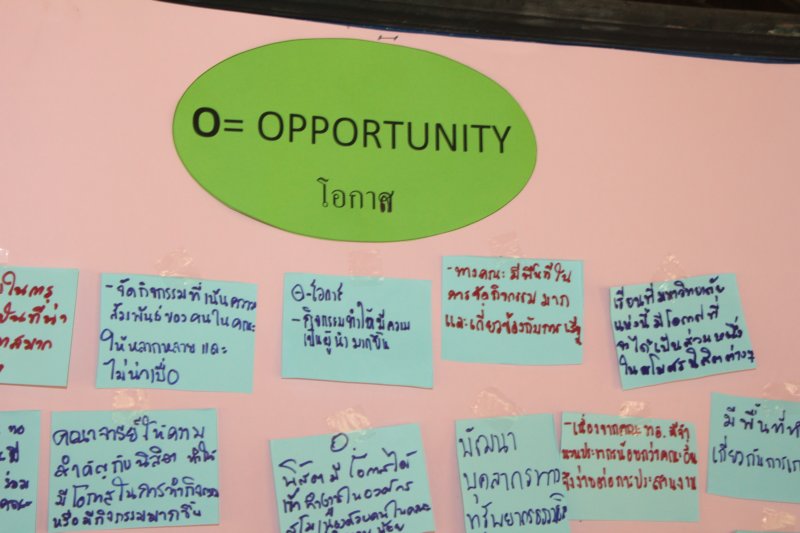 O= OPPORTUNITY
โอกาส
- จัดกิจกรรมที่เน้นความ
สัมพันธ์ของคนในคณะ
ให้หลากหลาย และ
ไม่น่าเบื่อ
O-โอกาส
- กิจกรรมทำให้มีความ
เป็นผู้นำมากขึ้น
- ทางคณะมีพื้นที่ใน
การจัดกิจกรรมมาก
และเกี่ยวข้องกับการ
เรียนที่มหาวิทยาลัย
แห่งนี้มีโอกาสที่
จะได้เป็นส่วนหนึ่ง
ในสโมสรนิสิตต่างๆ
คณาจารย์ให้ความ
สำคัญกับนิสิต ทำให้
มีโอกาสในการทำกิจกรรม
หรือมีกิจกรรมมากขึ้น
O
นิสิตมีโอกาสได้
เข้าทำงานในองค์กร
สโมเนื่องด้วยคนในคณะ
น้อย
พัฒนา
บุคลากรทาง
ทรัพยากรธรรม
- เนื่องจากคณะ ทอ. มีจำ
นวนประชากรน้อยกว่าคณะอื่น
จึงง่ายต่อการประสานงาน
มีพื้นที่
เกี่ยวกับการเก